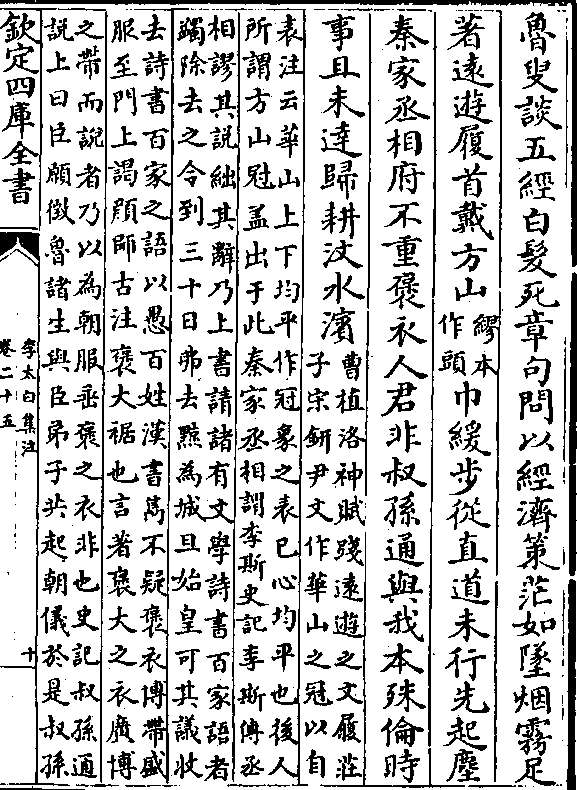 魯叟談五經白髮死章句問以經濟策茫如墜烟霧足
著遠遊履首戴方山繆本作頭巾緩步從直道未行先起塵
秦家丞相府不重褒衣人君非叔孫通與我本殊倫時
事且未達歸耕汶水濱曹植洛神賦踐遠遊之文履莊
子宋鈃尹文作華山之冠以自
表注云華山上下均平作冠象之表已心均平也後人
所謂方山冠葢出于此秦家丞相謂李斯史記李斯傳丞
相謬其說絀其辭乃上書請諸有文學詩書百家語者
蠲除去之令到三十日弗去黥為城旦始皇可其議收
去詩書百家之語以愚百姓漢書雋不疑褒衣博帶盛
服至門上謁顔師古注褒大裾也言著褒大之衣廣博
之帶而說者乃以為朝服垂褒之衣非也史記叔孫通
說上曰臣願徵魯諸生與臣弟子共起朝儀於是叔孫
欽定四庫全書
李太白集注
卷二十五
十